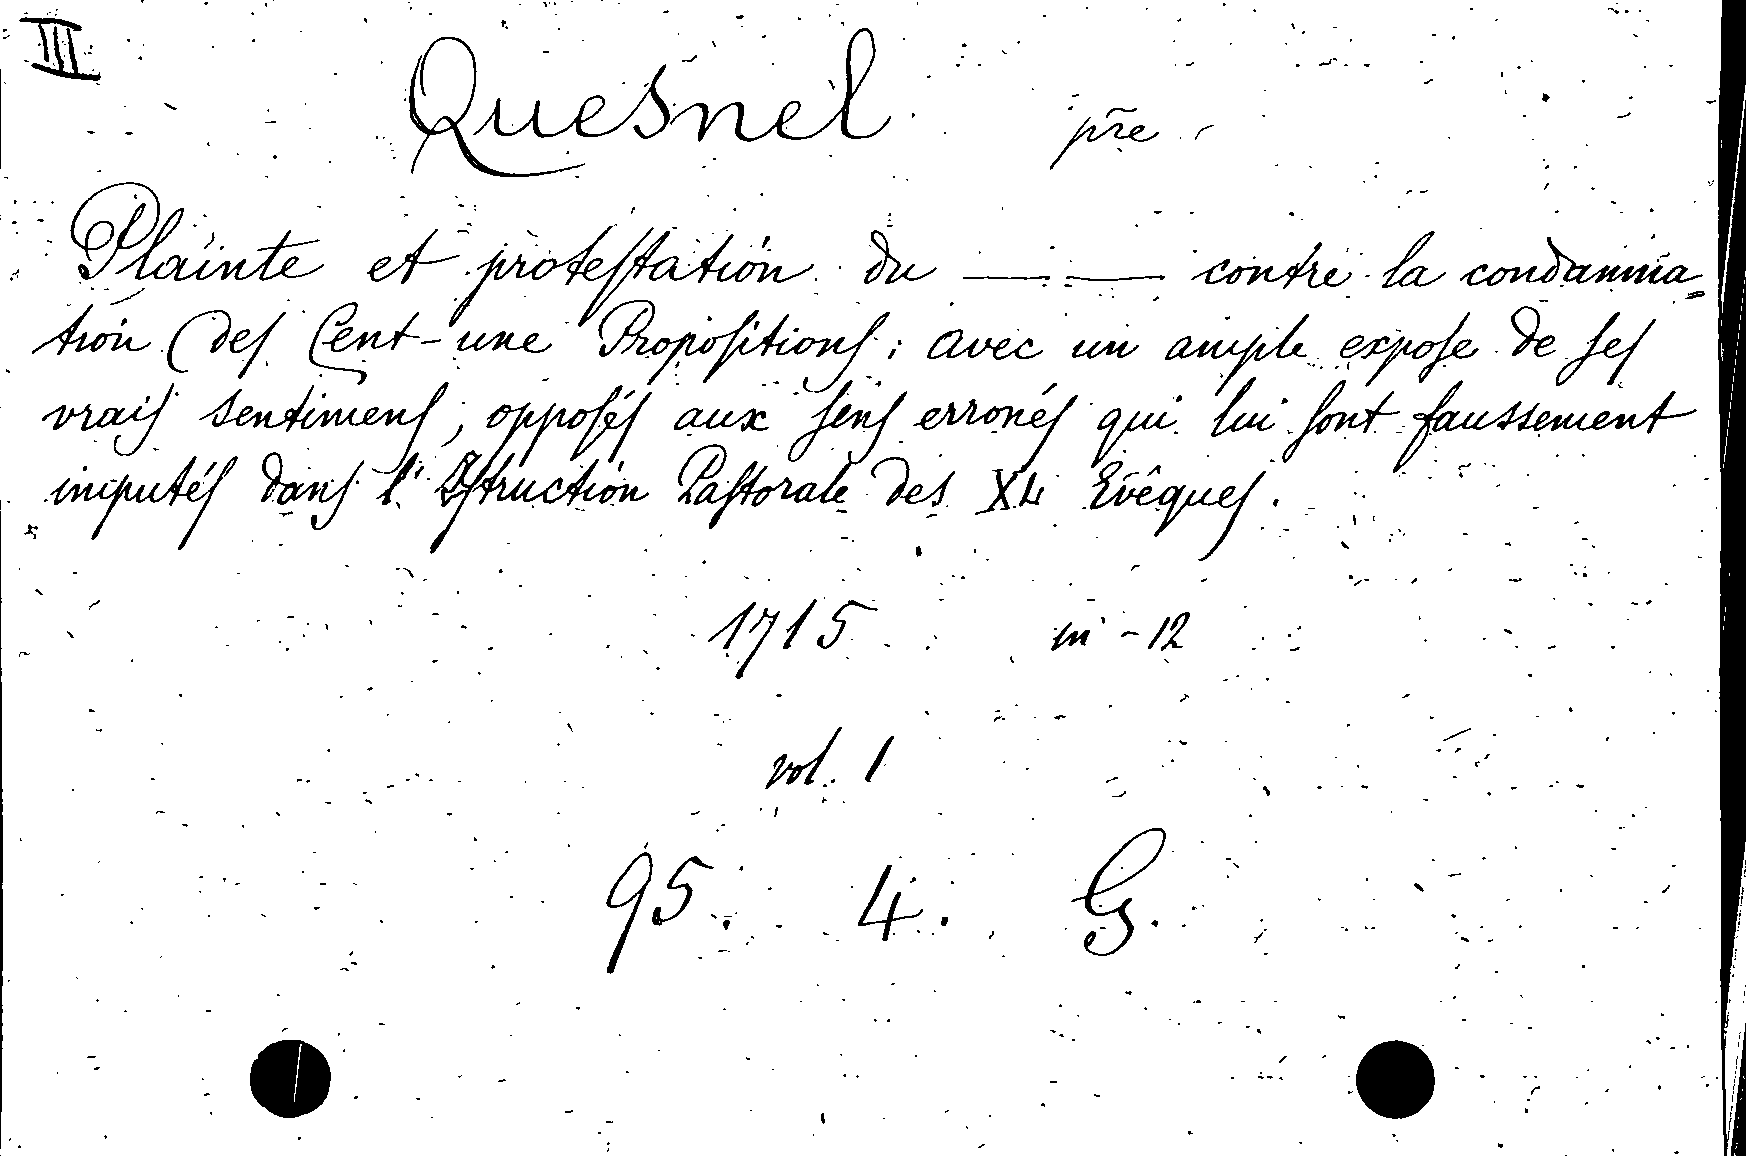 III
Quesnel pr̃e
Plainte et proteſtation du —— —— contre la condamna=
tion des Cent-une Propoſitions : avec un ample expoſe de ſes
vrais sentimens, oppoſés aux ſens erronés qui lui ſont faussement
imputés dans l'Iſtruction Paſtorale des XL Evêques.
1715 in-12
vol. 1
95. 4. G.